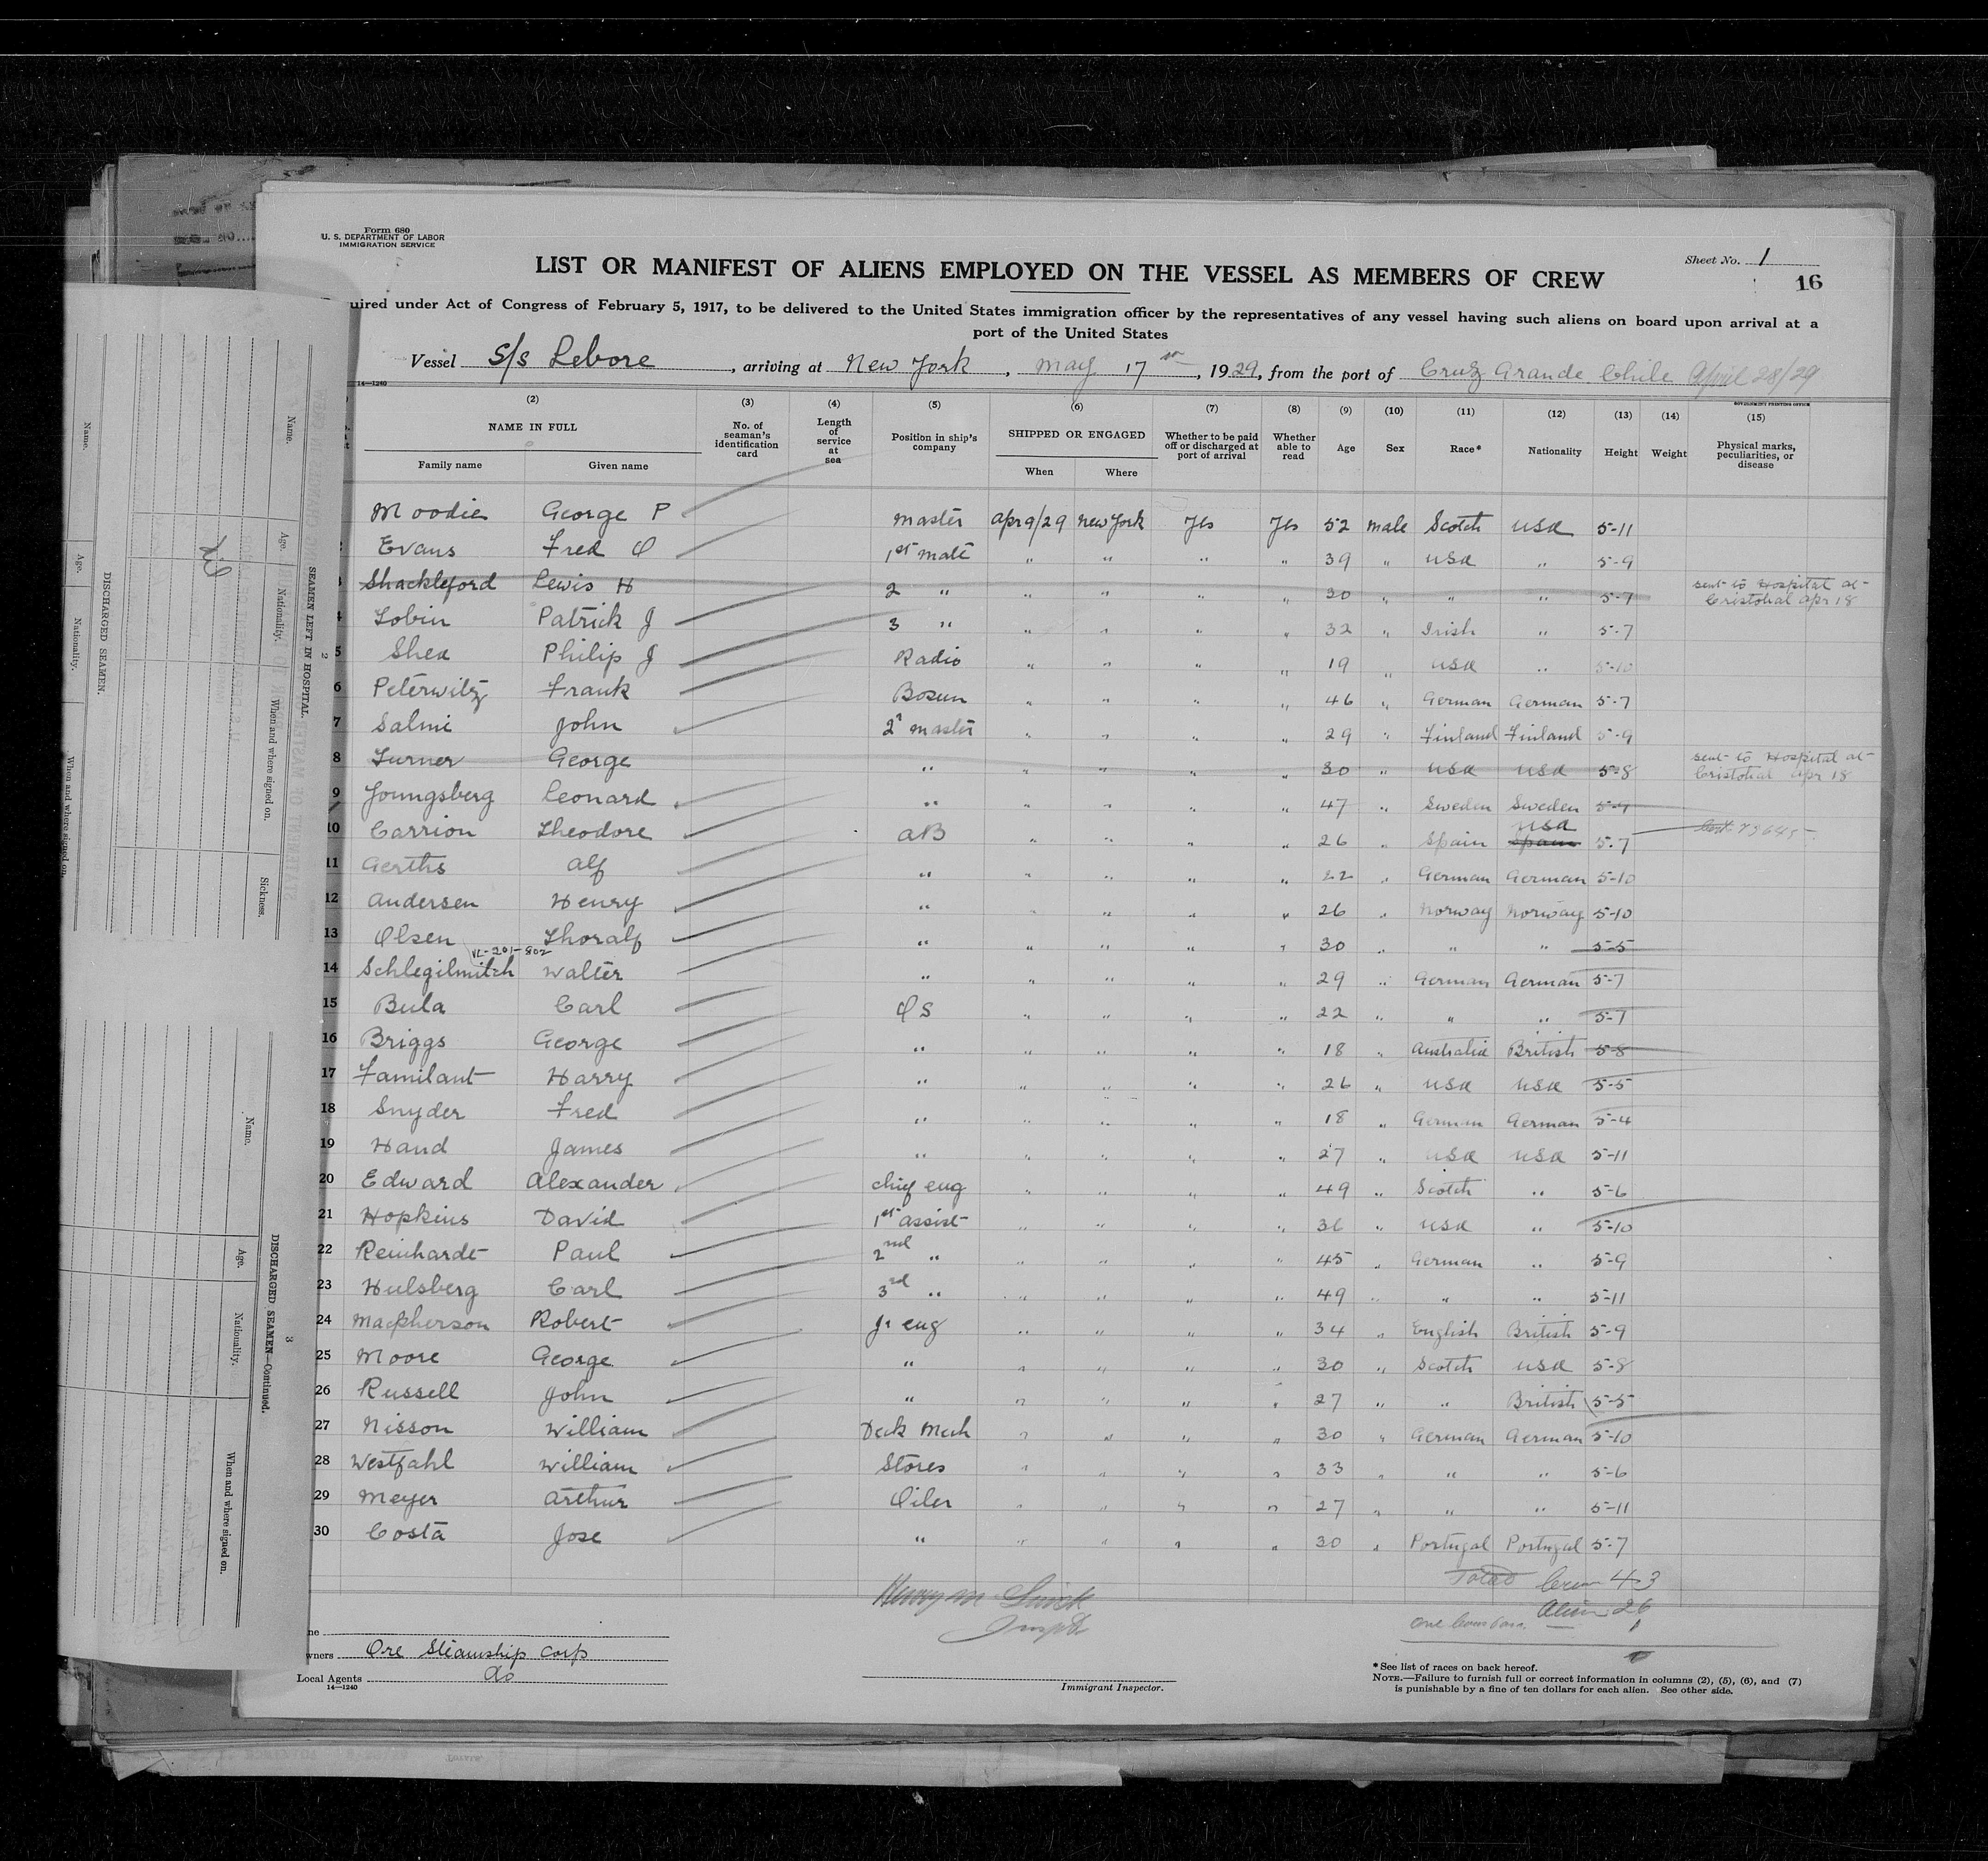 Form 680
U. S. DEPARTMENT OF LABOR
IMMIGRATION SERVICE
Sheet No. 1
16
LIST OR MANIFEST OF ALIENS EMPLOYED ON THE VESSEL AS MEMBERS OF CREW
uired under Act of Congress of February 5, 1917, to be delivered to the United States immigration officer by the representatives of any vessel having such aliens on board upon arrival at a
port of the United States
Vessel S/s Lebore, arriving at New York, May 17, 1929, from the port of Cruz Grande Chile April 28/29
14—1240
GOVERNMENT PRINTING OFFICE
(2) (3) (4) (5) (6) (7) (8) (9) (10) (11) (12) (13) (14) (15)
NAME IN FULL No. of seaman's identification card Length of service at sea Position in ship's company SHIPPED OR ENGAGED Whether to be paid off or discharged at port of arrival Whether able to read Age Sex Race* Nationality Height Weight Physical marks, peculiarities, or disease
Family name Given name When Where
Moodie George P master apr 9/29 new york Yes Yes 52 male Scotch USA 5-11
Evans Fred O 1st mate " " " " 39 " USA " 5-9
Shackleford Lewis H 2 " " " " " 30 " " " 5-7 sent to Hospital at Cristobal apr 18
Tobin Patrick J 3 " " " " " 32 " Irish " 5-7
5 Shea Philip J Radio " " " " 19 " USA " 5-10
6 Peterwitz Frank Bosun " " " " 46 " German German 5-7
7 Salmi John 2" master " " " " 29 " Finland Finland 5-9
8 Turner George " " " " " 30 " USA USA 5-8 sent to Hospital at Cristobal apr 18
9 Youngsberg Leonard " " " " " 47 " Sweden Sweden
10 Carrion Theodore AB " " " " 26 " Spain Spain USA 5-7
11 Gerths Alf " " " " " 22 " German German 5-10
12 Andersen Henry " " " " " 26 " Norway Norway 5-10
13 Olsen Thoralf " " " " " 30 " " " 5-5
14 Schlegilmitch Walter " " " " " 29 " German German 5-7
15 Bula Carl OS " " " " 22 " " " 5-7
16 Briggs George " " " " " 18 " Australia British 5-8
17 Familant Harry " " " " " 26 " USA USA 5-5
18 Snyder Fred " " " " " 18 " German German 5-4
19 Hand James " " " " " 27 " USA USA 5-11
20 Edward Alexander chief eng " " " " 49 " Scotch " 5-6
21 Hopkins David 1st assist " " " " " USA " 5-10
22 Reinhardt Paul 2nd " " " " " 45 " German " 5-9
23 Hulsberg Carl 3rd " " " " " 49 " " " 5-11
24 MacPherson Robert Jr eng " " " " 34 " English British 5-9
25 Moore George " " " " " 30 " Scotch USA 5-8
26 Russell John " " " " " 27 " " British 5-5
27 Nisson William Deck Mech " " " " 30 " German German 5-10
28 Westfahl William Stores " " " " 33 " " " 5-6
29 Meyer Arthur Oiler " " " " 27 " " " 5-11
30 Costa Jose " " " " " 30 " Portugal Portugal 5-7
Total Crew 43
Alien 26
wners Ore Steamship Corp
Local Agents do
14—1240
Immigrant Inspector.
*See list of races on back hereof.
NOTE.—Failure to furnish full or correct information in columns (2), (5), (6), and (7)
is punishable by a fine of ten dollars for each alien. See other side.
2
SEAMEN LEFT IN HOSPITAL.
Name. Age. Nationality. When and where signed on. Sickness.
DISCHARGED SEAMEN.
Name. Age. Nationality. When and where signed on.
3
DISCHARGED SEAMEN—Continued.
Name. Age. Nationality. When and where signed on.